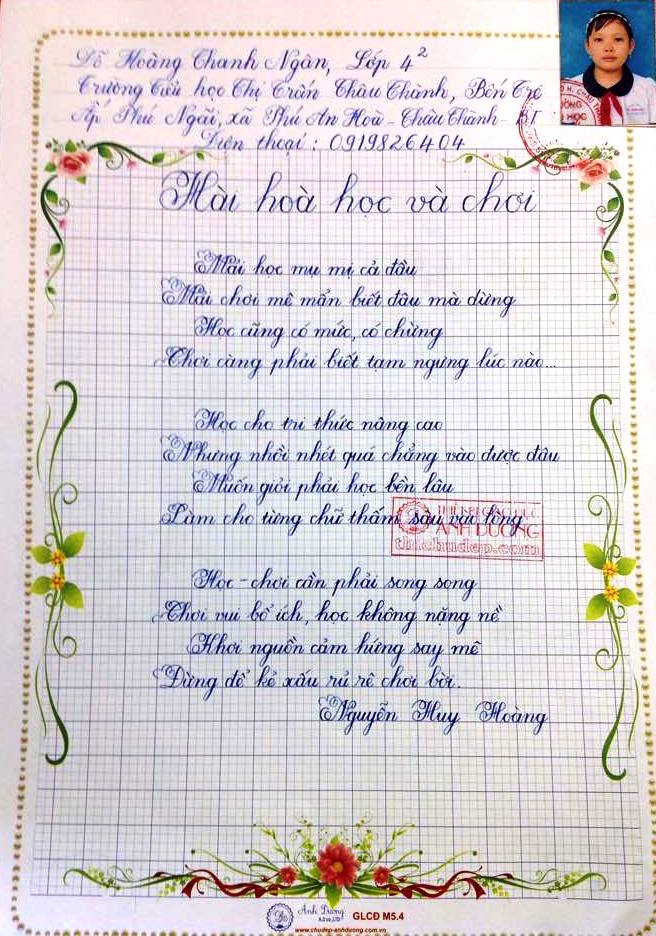 Đỗ Hoàng Thanh Ngân, Lớp 4²
Trường Tiểu học Thị Trấn Châu Thành, Bến Tre
Ấp Phú Ngãi, xã Phú An Hoà - Châu Thành - BT
Điện thoại : 0919826404
Hài hoà học và chơi
Mải học mụ mị cả đầu
Mải chơi mê mẩn biết đâu mà dừng
Học cũng có mức, có chừng
Chơi càng phải biết tạm ngưng lúc nào...
Học cho tri thức nâng cao
Nhưng nhồi nhét quá chẳng vào được đâu
Muốn giỏi phải học bền lâu
Làm cho từng chữ thấm sâu vào lòng
THIẾT BỊ GIÁO DỤC
ÁNH DƯƠNG
thichudep.com
Học - chơi cần phải song song
Chơi vui bổ ích, học không nặng nề
Khơi nguồn cảm hứng say mê
Đừng để kẻ xấu rủ rê chơi bời.
Nguyễn Huy Hoàng
Ánh Dương
GLCĐ M5.4
www.chudep-anhduong.com.vn